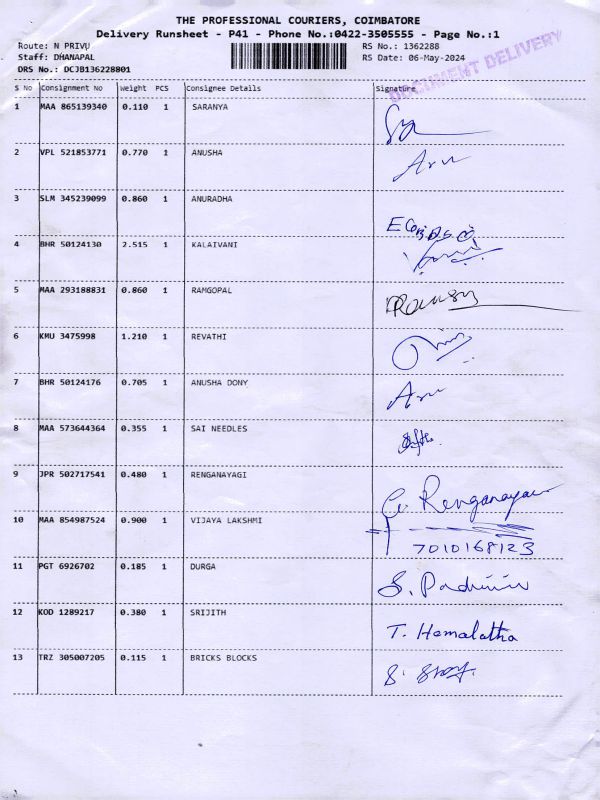 THE PROFESSIONAL COURIERS, COIMBATORE
Delivery Runsheet - P41 - Phone No.:0422-3505555 - Page No.:1
Route: N PRIVU
RS No.: 1362288
Staff: DHANAPAL
RS Date: 06-May-2024
DRS No.: DCJB136228801
DOCUMENT DELIVERY
S No Consignment No Weight PCS Consignee Details Signature
1 MAA 865139340 0.110 1 SARANYA
2 VPL 521853771 0.770 1 ANUSHA Anu
3 SLM 345239099 0.860 1 ANURADHA
4 BHR 50124130 2.515 1 KALAIVANI
5 MAA 293188831 0.860 1 RAMGOPAL
6 KMU 3475998 1.210 1 REVATHI
7 BHR 50124176 0.705 1 ANUSHA DONY Anu
8 MAA 573644364 0.355 1 SAI NEEDLES
9 JPR 502717541 0.480 1 RENGANAYAGI
10 MAA 854987524 0.900 1 VIJAYA LAKSHMI
7010168123
11 PGT 6926702 0.185 1 DURGA
12 KOD 1289217 0.380 1 SRIJITH T. Hemalatha
13 TRZ 305007205 0.115 1 BRICKS BLOCKS